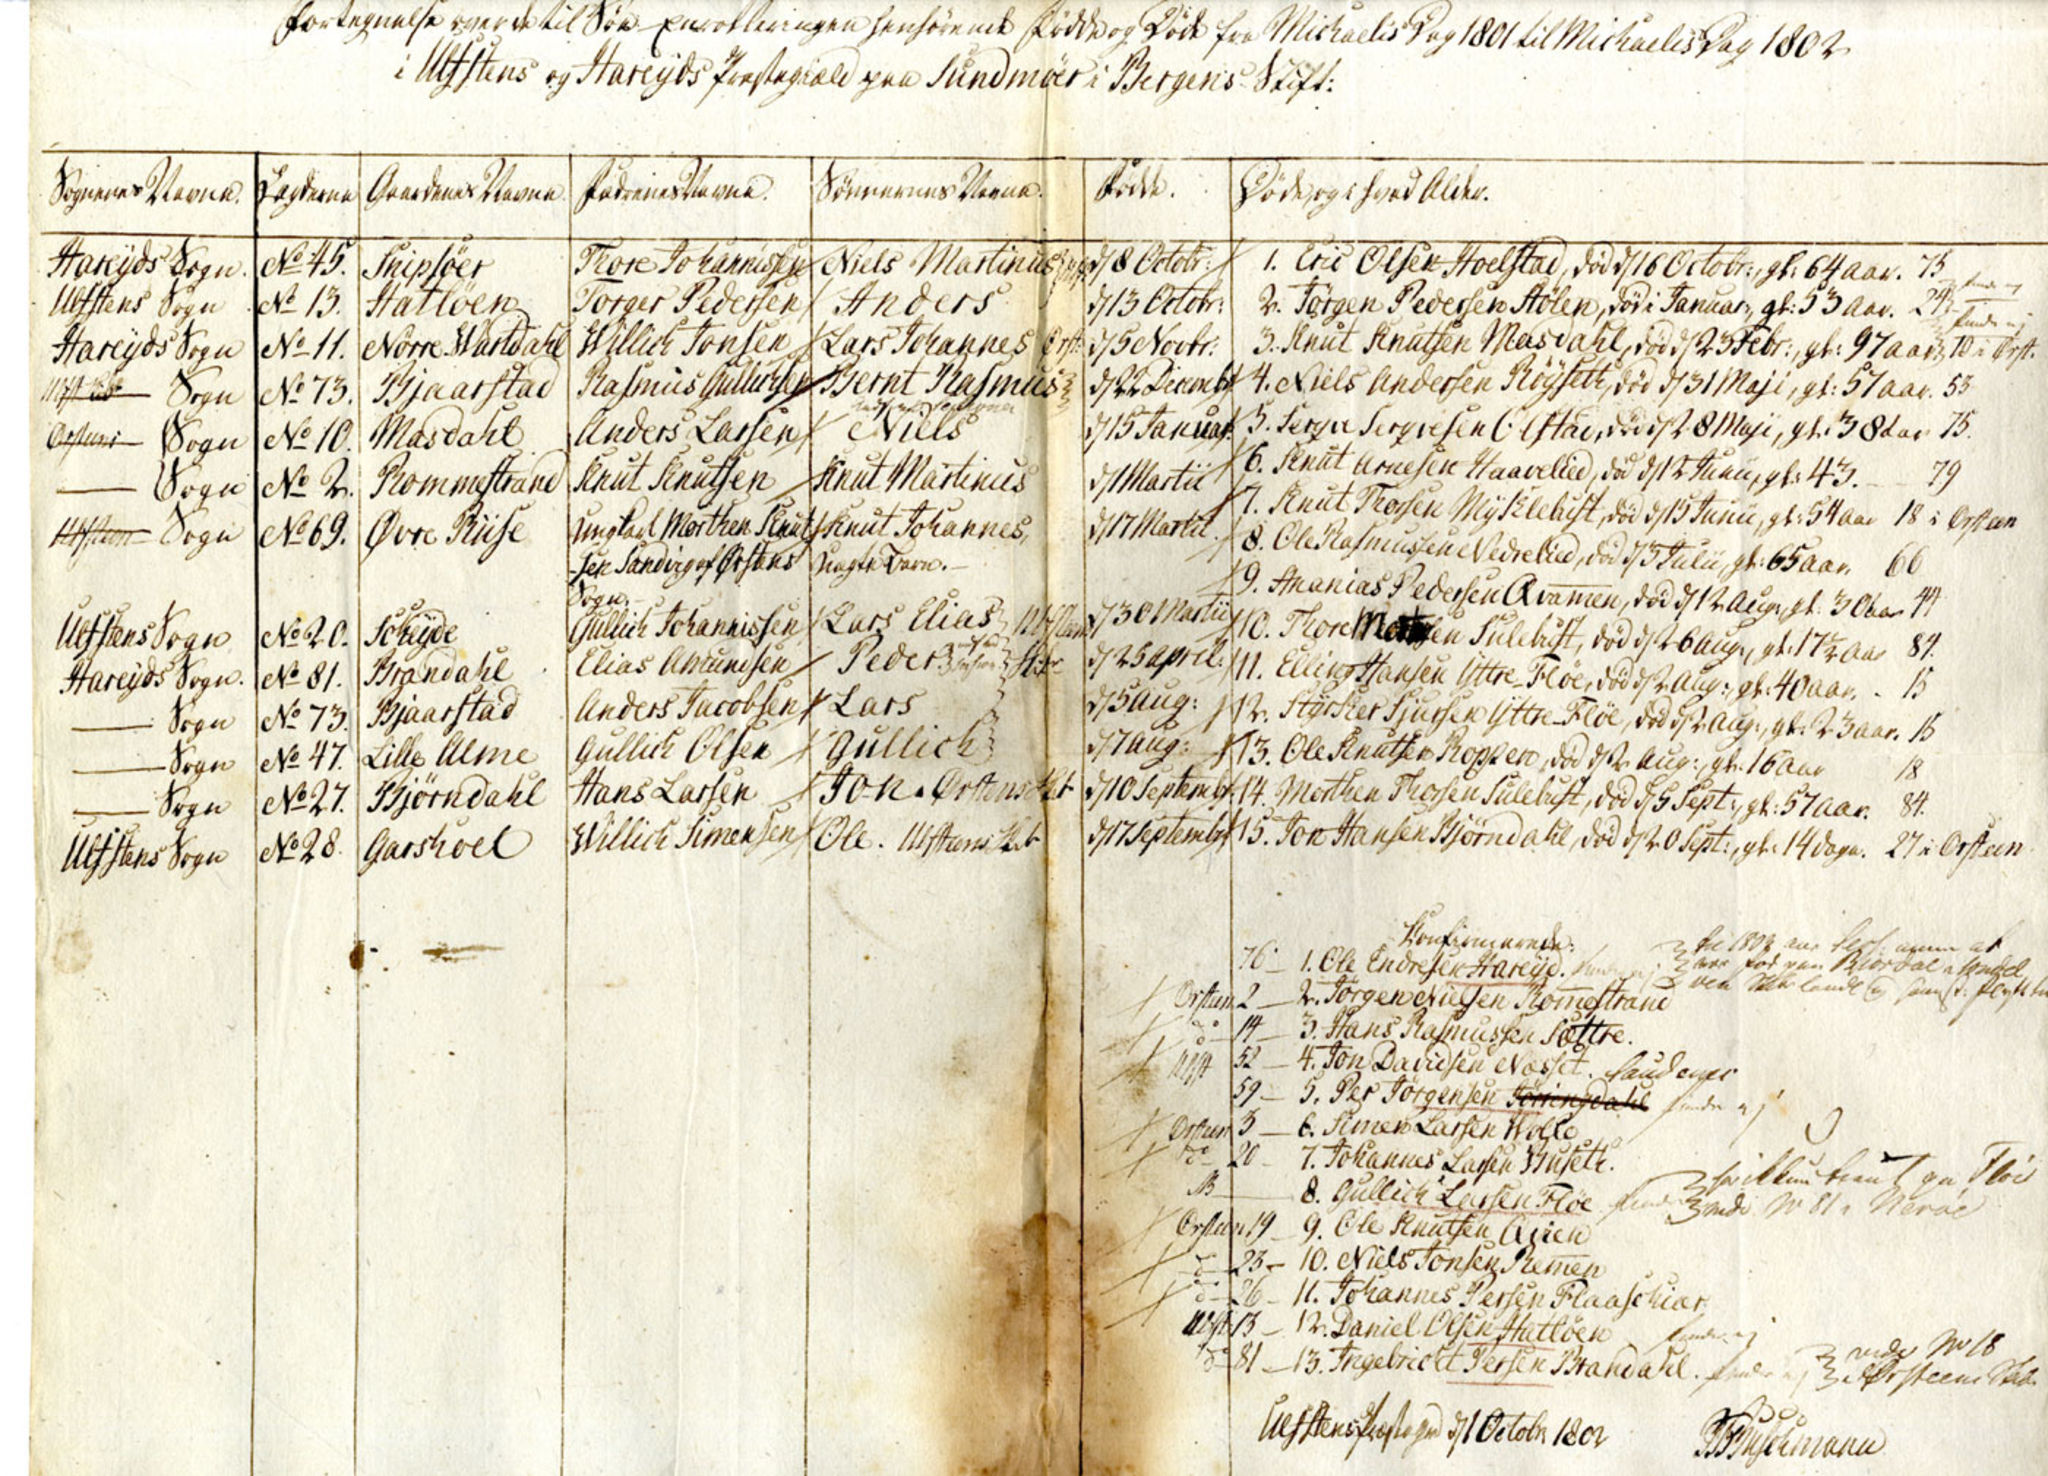 Fortegnelse over de til Søe-Enrolleringen henhørende Fødde og Døde fra Michaelis Dag 1801 til Michaelis Dag 1802
i Ulfstens og Hareyds Præstegiæld paa Sundmöer i Bergens Stift:
Sognenes Navne. Lægderne Gaardenes Navne. Fædrenes Navne. Sönnernes Navne. Födde. Döde, og i hvad Alder.
Hareyds Sogn. No 45. Snipsöer Thore Johannissen Niels Martinus d/8 Octobr: 1. Eric Olsen Hoelstad, död d/16 Octobr:, gl: 64 aar. 75
Ulfstens Sogn No 13. Hatlöen Torger Pedersen Anders d/13 Octobr: 2. Jörgen Pedersen Stölen, död i Januar:, gl: 53 aar. 24
Hareyds Sogn No 11. Nörre-Wartdahl Willich Jonsen Lars Johannes Örst: d/5 Novbr: 3. Knut Knutsen Masdahl, död d/23 Febr:, gl: 97 aar 10 i Örst.
Sogn No 73. Bjaarstad Rasmus Gullichsen Bernt Rasmus d/22 Decembr 4. Niels Andersen Röyseth, död d/31 Maji, gl: 57 aar. 53
Sogn No 10. Masdahl Anders Larsen Niels d/15 Januar. 5. Olstad, död d/28 Maji, gl: 38 aar 75.
Sogn No 2. Rommestrand Knut Knutsen Knut Martinus d/1 Martii 6. Knut Arnesen Haavelied, död d/12 Junii, gl: 43. 79
Sogn No 69. Øvre Riise Ungkarl Morthen Knut Knut Johannes, d/17 Martii. 7. Knut Thorsen Myklebust, död d/15 Junii, gl: 54 aar 18 i Orsteen
-sen Sandvig af Örstens Uægte Barn.- 8. Ole Rasmussen Nedrelied, död d/3 Julii, gl: 65 aar. 66
Sogn.- 9. Ananias Pedersen Qvamen, död d/12 Aug:, gl: 30 aar 44
Ulfstens Sogn No 20. Söheyde Gullich Johannissen Lars Elias d/30 Martii 10. Thore Sulebust, död d/26 Aug:, gl: 17½ aar 84.
Hareyds Sogn. No 81. Brandahl Elias Amundsen Peder d/25 April: 11. Elling Hansen Yttre-Flöe, död d/2 Aug:, gl: 40 aar. 15
Sogn No 73. Bjaarstad Anders Jacobsen Lars d/5 Aug: 12. Styrker Sjursen Yttre-Flöe, död d/2 Aug:, gl: 23 aar. 15
Sogn No 47. Lille Alme Gullich Olsen Gullich d/7 Aug: 13. Ole Knutsen Roppen, död d/2 Aug:, gl: 16 aar 18
Sogn No 27. Björndahl Hans Larsen Jon. Örstens d/10 Septembr 14. Morthen Thorsen Sulebust, död d/5 Sept:, gl: 57 aar. 84.
Ulfstens Sogn No 28. Garshoel Willich Simensen Ole. Ulfstens d/17 Septembr 15. Jon Hansen Björndahl, död d/20 Sept:, gl: 14 dage. 27 i Orsteen
Konfirmerede:
76 - 1. Ole Endresen Hareyd.
Orsteen 2 - 2. Jörgen Nielsen Rommestrand
do 14 - 3. Hans Rasmussen Sættre.
Ulfst 52 - 4. Jon Davidsen Nosset.
59 - 5. Per Jörgensen findes ej
Orsteen 3 - 6. Simen Larsen Wolle
do 20 - 7. Johannes Larsen Huseth.
8. Gullich Larsen Flöe No 81
Orsteen 19 - 9. Ole Knutsen Aasen
do 23 - 10. Niels Jonsen Remen
do 26 - 11. Johannes Persen Flaaschiar
Ulfst 13 - 12. Daniel Olsen Hatlöen findes ej
do 81 - 13. Ingebricht Persen Brandahl. findes ej No 18
Ulfstens Præstegrd d/1 Octobr 1802 Buschmann